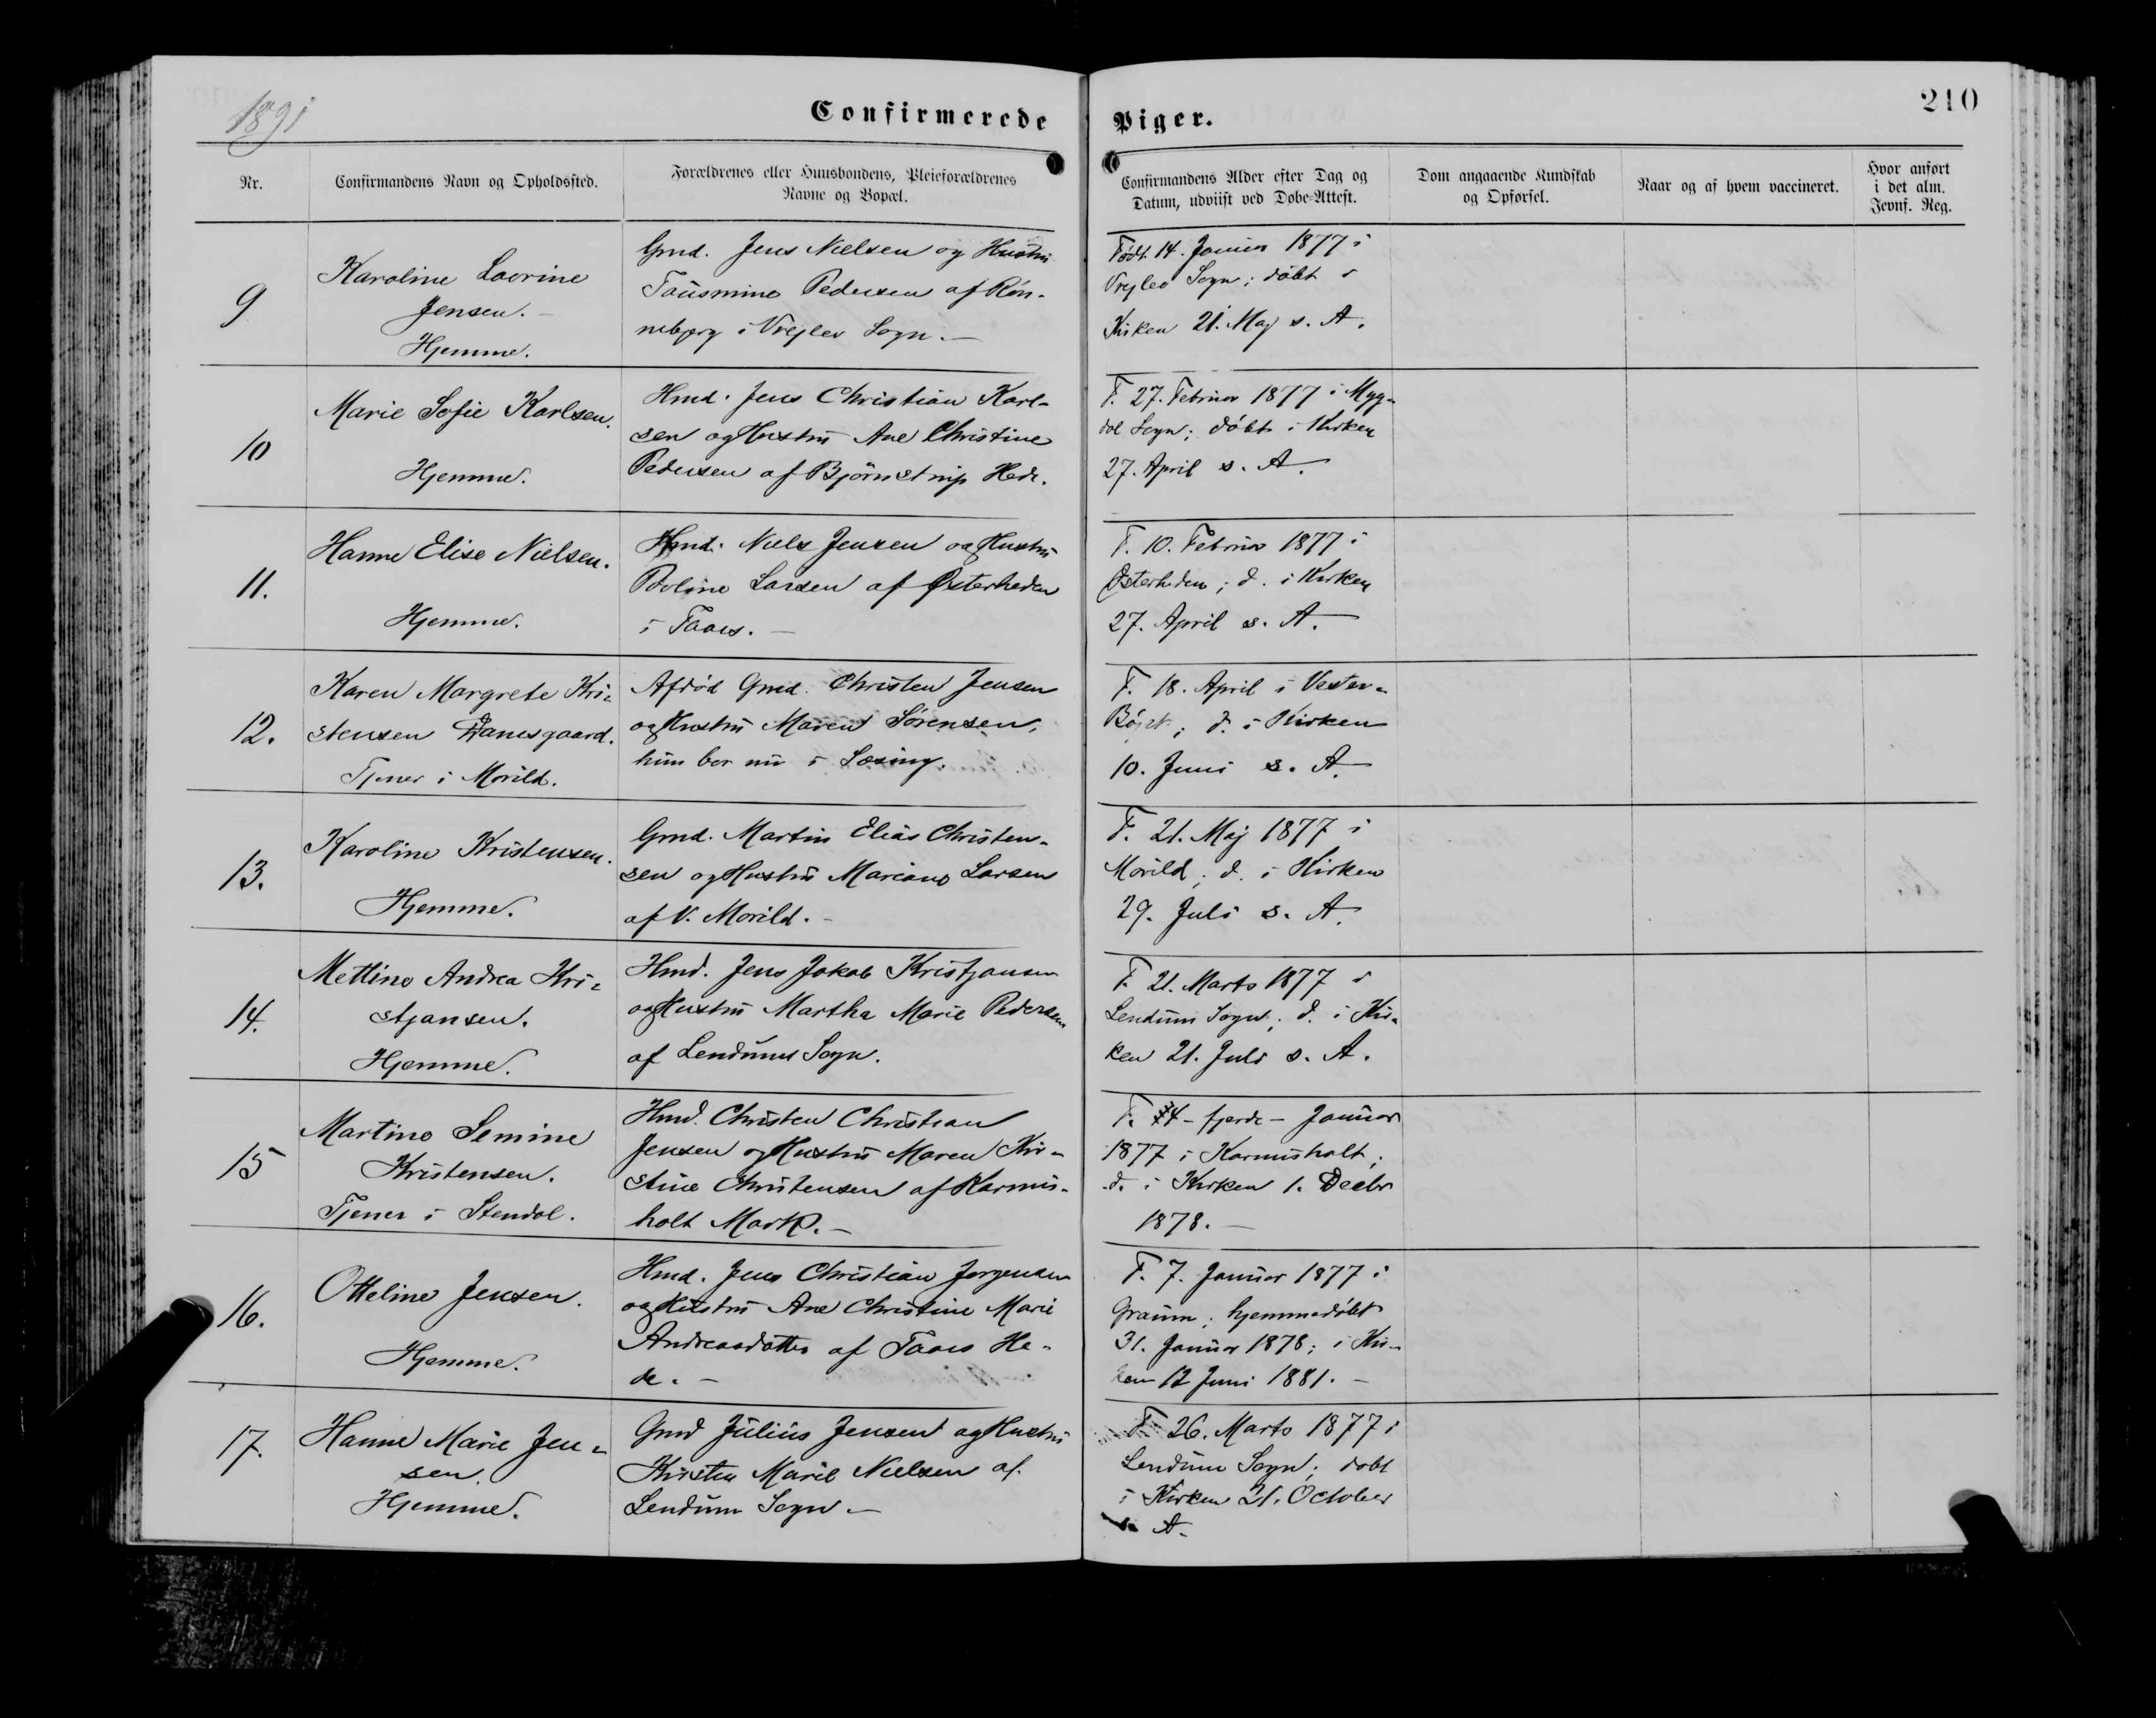 1891
Confirmerede Piger.
210
Nr.
Confirmandens Navn og Opholdssted.
Forældrenes eller Huusbondens, Pleieforældrenes
Navne og Bopæl.
Confirmandens Alder efter Dag og
Datum, udviist ved Døbe-Attest.
Dom angaaende Kundskab
og Opførsel.
Naar og af hvem vaccineret.
Hvor anført
i det alm.
Jevnf. Reg.
9
Karoline Lovrine
Jensen.
Hjemme.
Gmd. Jens Nielsen og Hustru
Tausmine Pedersen af Røn-
nebjerg i Vrejlev Sogn.
Født 14. Januar 1877 i
Vrejlev Sogn; døbt i
Kirken 21. Maj s. A.
10
Marie Sofie Karlsen.
Hjemme.
Hmd. Jens Christian Karl-
sen og Hustru Ane Christine
Pedersen af Bjørnstrup Hede.
F. 27. Februar 1877 i Myg-
dal Sogn; døbt i Kirken
27. April s. A.
11.
Hanne Elise Nielsen.
Hjemme.
Hmd. Niels Jensen og Hustru
Poline Larsen af Østerheden
i Taars.
F. 10. Februar 1877 i
Østerheden; d. i Kirken
27. April s. A.
12.
Karen Margrete Kri-
stensen Damsgaard.
Tjener i Morild.
Afdød Gmd. Christen Jensen
og Hustru Maren Sørensen,
hun bor nu i Sæsing.
F. 18. April i Vester-
d. i Kirken
10. Juni s. A.
13.
Karoline Kristensen.
Hjemme.
Gmd. Martin Elias Christen-
sen og Hustru Mariane Larsen
af V. Morild.
F. 21. Maj 1877 i
Morild; d. i Kirken
29. Juli s. A.
14.
Mettine Andrea Kri-
stjansen.
Hjemme.
Hmd. Jens Jakob Kristjansen
og Hustru Martha Marie Pedersen
af Lendum Sogn.
F. 21. Marts 1877 i
Lendum Sogn; d. i Kir-
ken 21. Juli s. A.
15
Martine Semine
Kristensen.
Tjener i Stendal.
Hmd. Christen Christian
Jensen og Hustru Maren Kri-
stine Christensen af Karmis-
holt Mark.
F. 4 - fjerde - Januar
1877 i Karmisholt;
d. i Kirken 1. Decbr
1878.
16.
Otteline Jensen.
Hjemme.
Hmd. Jens Christian Jørgensen
og Hustru Ane Christine Marie
Andreasdatter af Taars He-
de.
F. 7. Januar 1877 i
Graum; hjemmedøbt
31. Januar 1878; i Kir-
ken 12 Juni 1881.
17.
Hanne Marie Jen-
sen.
Hjemme.
Gmd Julius Jensen og Hustru
Kirsten Marie Nielsen af
Lendum Sogn.
F. 26. Marts 1877 i
Lendum Sogn; døbt
i Kirken 21. October
s. A.